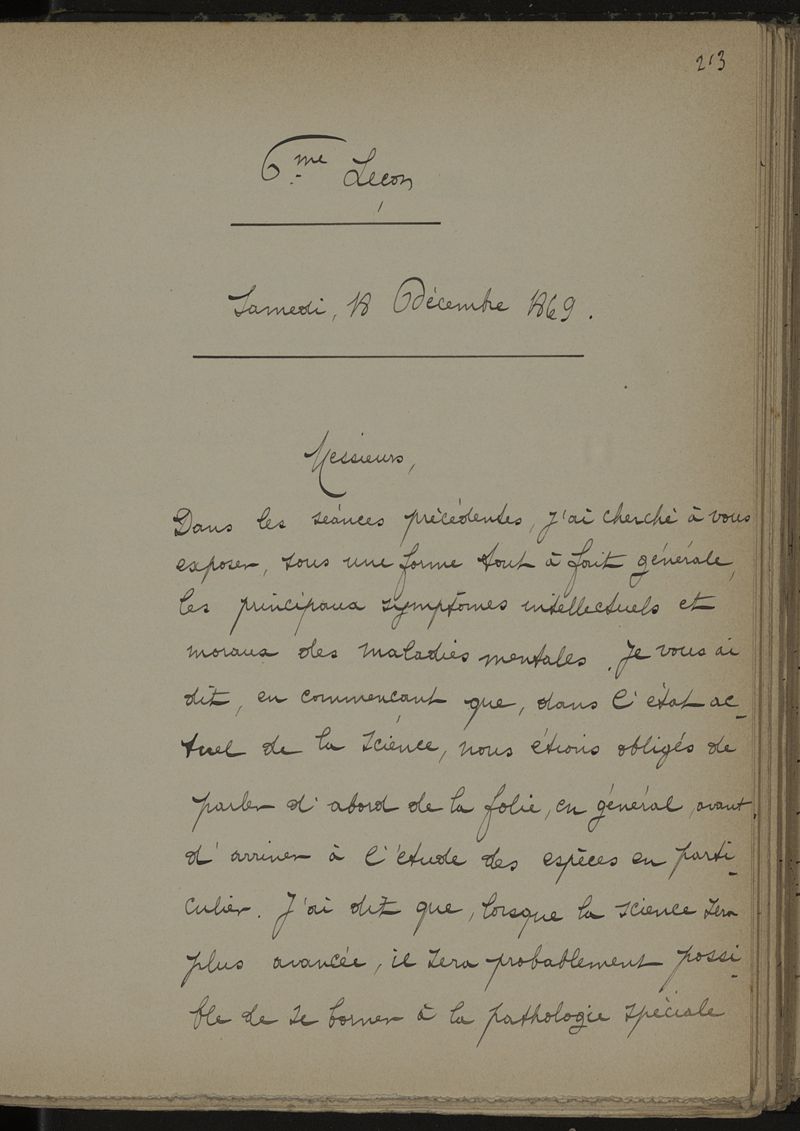 213
6.me Leçon
Samedi, 18 Décembre 1869.
Messieurs,
Dans les séances précédentes, j'ai cherché à vous
exposer, sous une forme tout à fait générale,
les principaux symptômes intellectuels et
moraux des maladies mentales. Je vous ai
dit, en commençant que, dans l'état ac-
tuel de la science, nous étions obligés de
parler d'abord de la folie, en général, avant
d'arriver à l'étude des espèces en parti-
culier. J'ai dit que, lorsque la science sera
plus avancée, il sera probablement possi-
ble de se borner à la pathologie spéciale